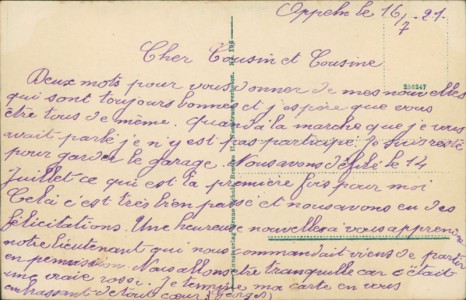 Oppeln le 16/7 - 21.
Cher Cousin et Cousine
Deux mots pour vous donner de mes nouvelles
qui sont toujours bonnes et j'espère que vous
être tous de même. Quand à la marche que je vous
avait parlé je n'y est pas participé. Je suis resté
pour garder le garage. Nous avons défilé le 14
Juillet ce qui est la première fois pour moi
Celà c'est très bien passé et nous avons eu des
félicitations. Une heureuse nouvelles à vous apprendre
notre lieutenant qui nous commandait viens de partir
en permission. Nous allons être tranquille car c'était
une vraie rosse. Je termine ma carte en vous
embrassant de tout cœur. Georges
258247